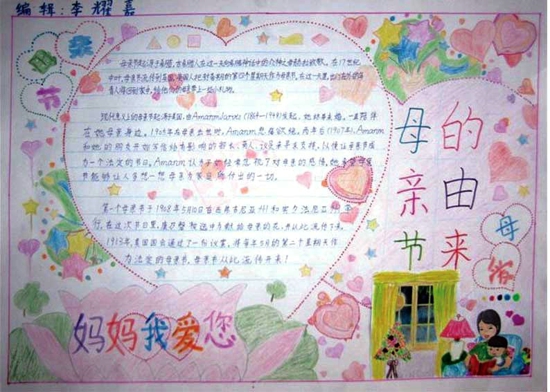 编辑:李耀嘉
母亲节
母亲节的由来
母亲节起源于希腊,古希腊人在这一天向希腊神话中的众神之母赫拉致敬。在17世纪
中叶,母亲节流传到英国,英国人把封斋期的第四个星期天作为母亲节。在这一天里,出门在外的年
青人将回到家中,给他们的母亲带上一些小礼物。
现代意义上的母亲节起源于美国,由Amanm Jarvis (1864-1948)发起,她终身未婚,一直陪伴
在她母亲身边。
Amanm
和她的朋友开始写信给有影响的部长、商人、议员来寻求支持,以便让母亲节成
为一个法定的节日。Amanm认为子女经常忽视了对母亲的感情,她希望母亲
节能够让人多想一想母亲为家庭所付出的一切。
第一个母亲节于1908年5月10日在西弗吉尼亚州和宾夕法尼亚州举
行,在这次节日里,康乃馨被选中为献给母亲的花,并以此流传下来。
1913年,美国国会通过了一份议案,将每年5月的第二个星期天作
为法定的母亲节,母亲节从此流传开来!
妈妈我爱您
母